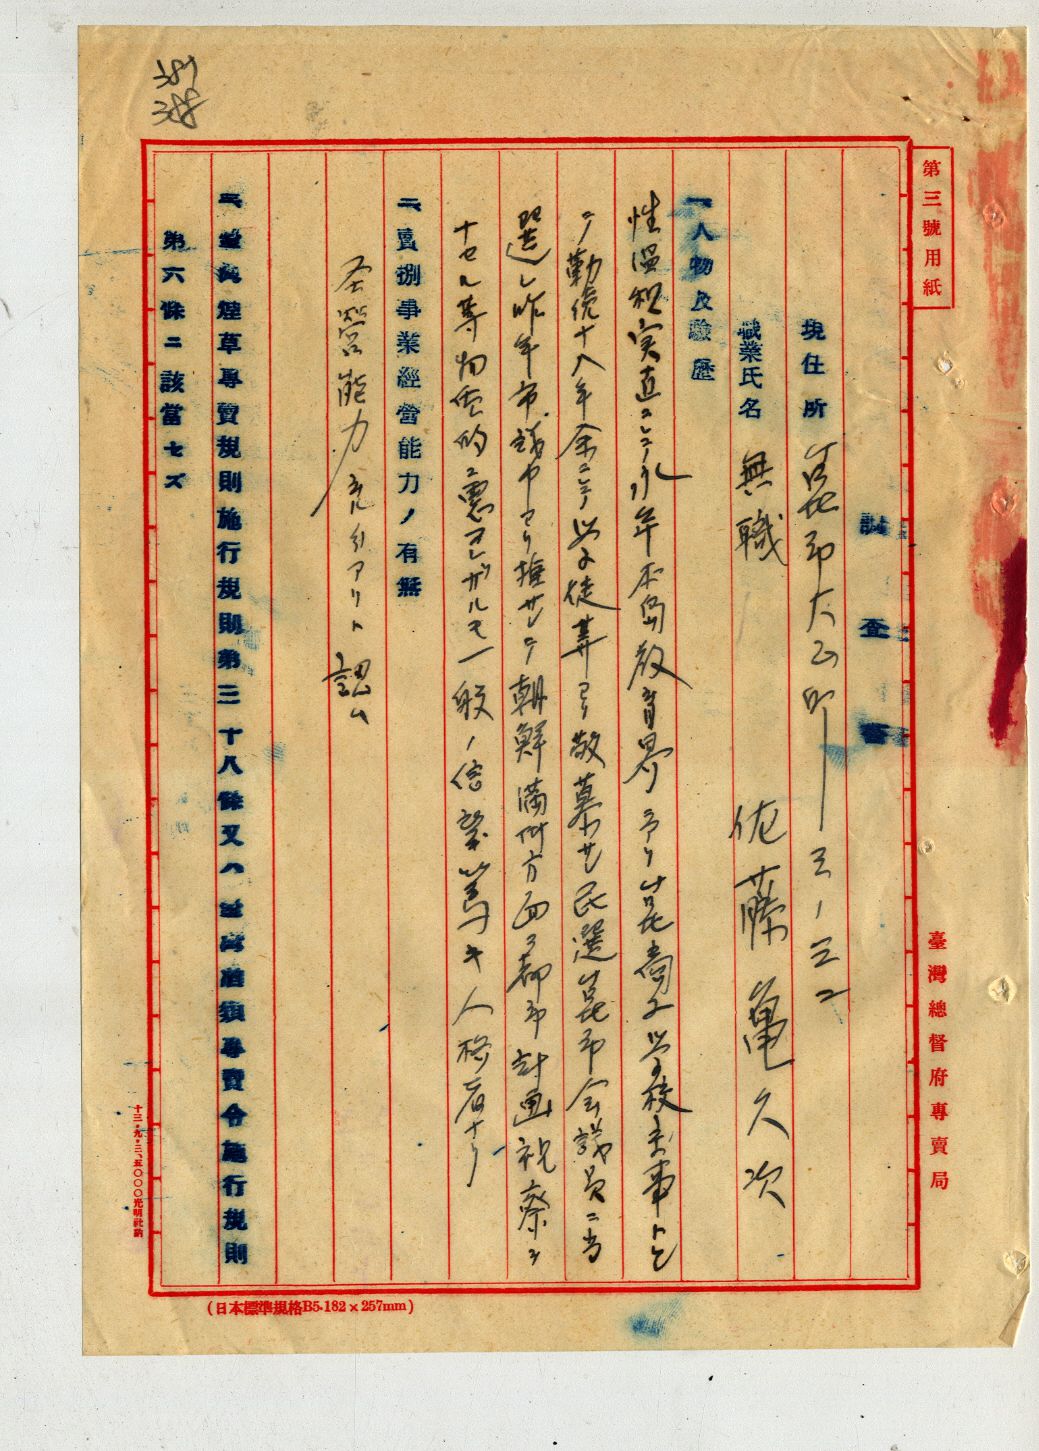 387
388
第三號用紙
臺灣總督府專賣局
調查書
現住所 嘉義市大正町一ノ三二
職業氏名 無職 佐藤亀久次
一、人物及驗歷
性温和実直ニシテ永年本島教育界ニアリ 嘉商工学校主事トシ
テ勤続十八年余ニシテ 学徒 ヨリ敬慕サレ民選 市会議員ニ当
選シ昨年市議中ヨリ推サレテ朝鮮満州方面ヲ都市計画視察ヲ
ナセル等物質的ニ恵マレザルモ一般ノ信望篤キ人格者ナリ
二、賣捌事業經營能力ノ有無
経営能力充分アリト認ム
三、臺灣煙草專賣規則施行規則第三十八條又ハ臺灣酒類專賣令施行規則
第六條ニ該當セズ
十三・九・三、五〇〇〇光明社納
(日本標準規格B5.182×257mm)